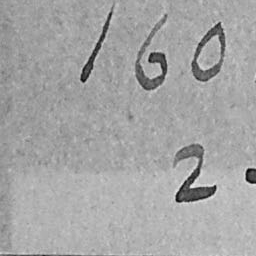 160.
2.